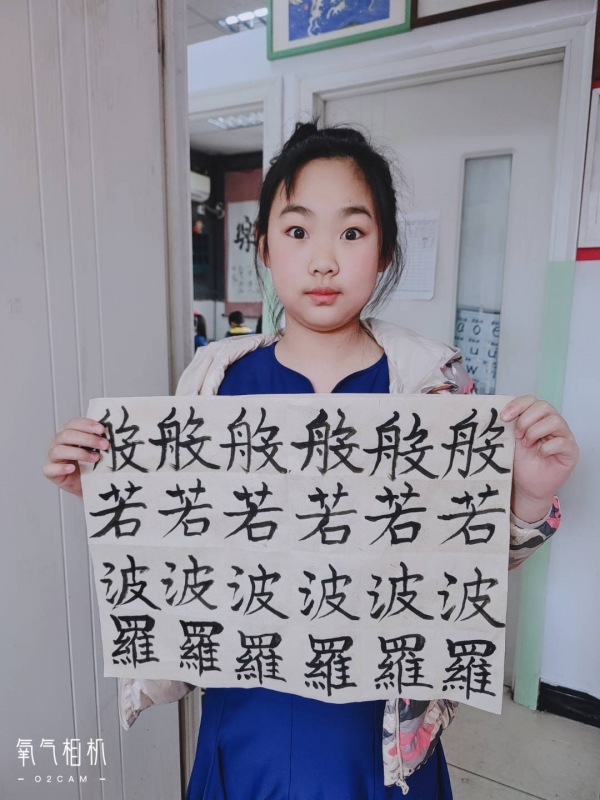 般般般般般般
若若若若若若
波波波波波波
羅羅羅羅羅羅
氧气相机
O2CAM